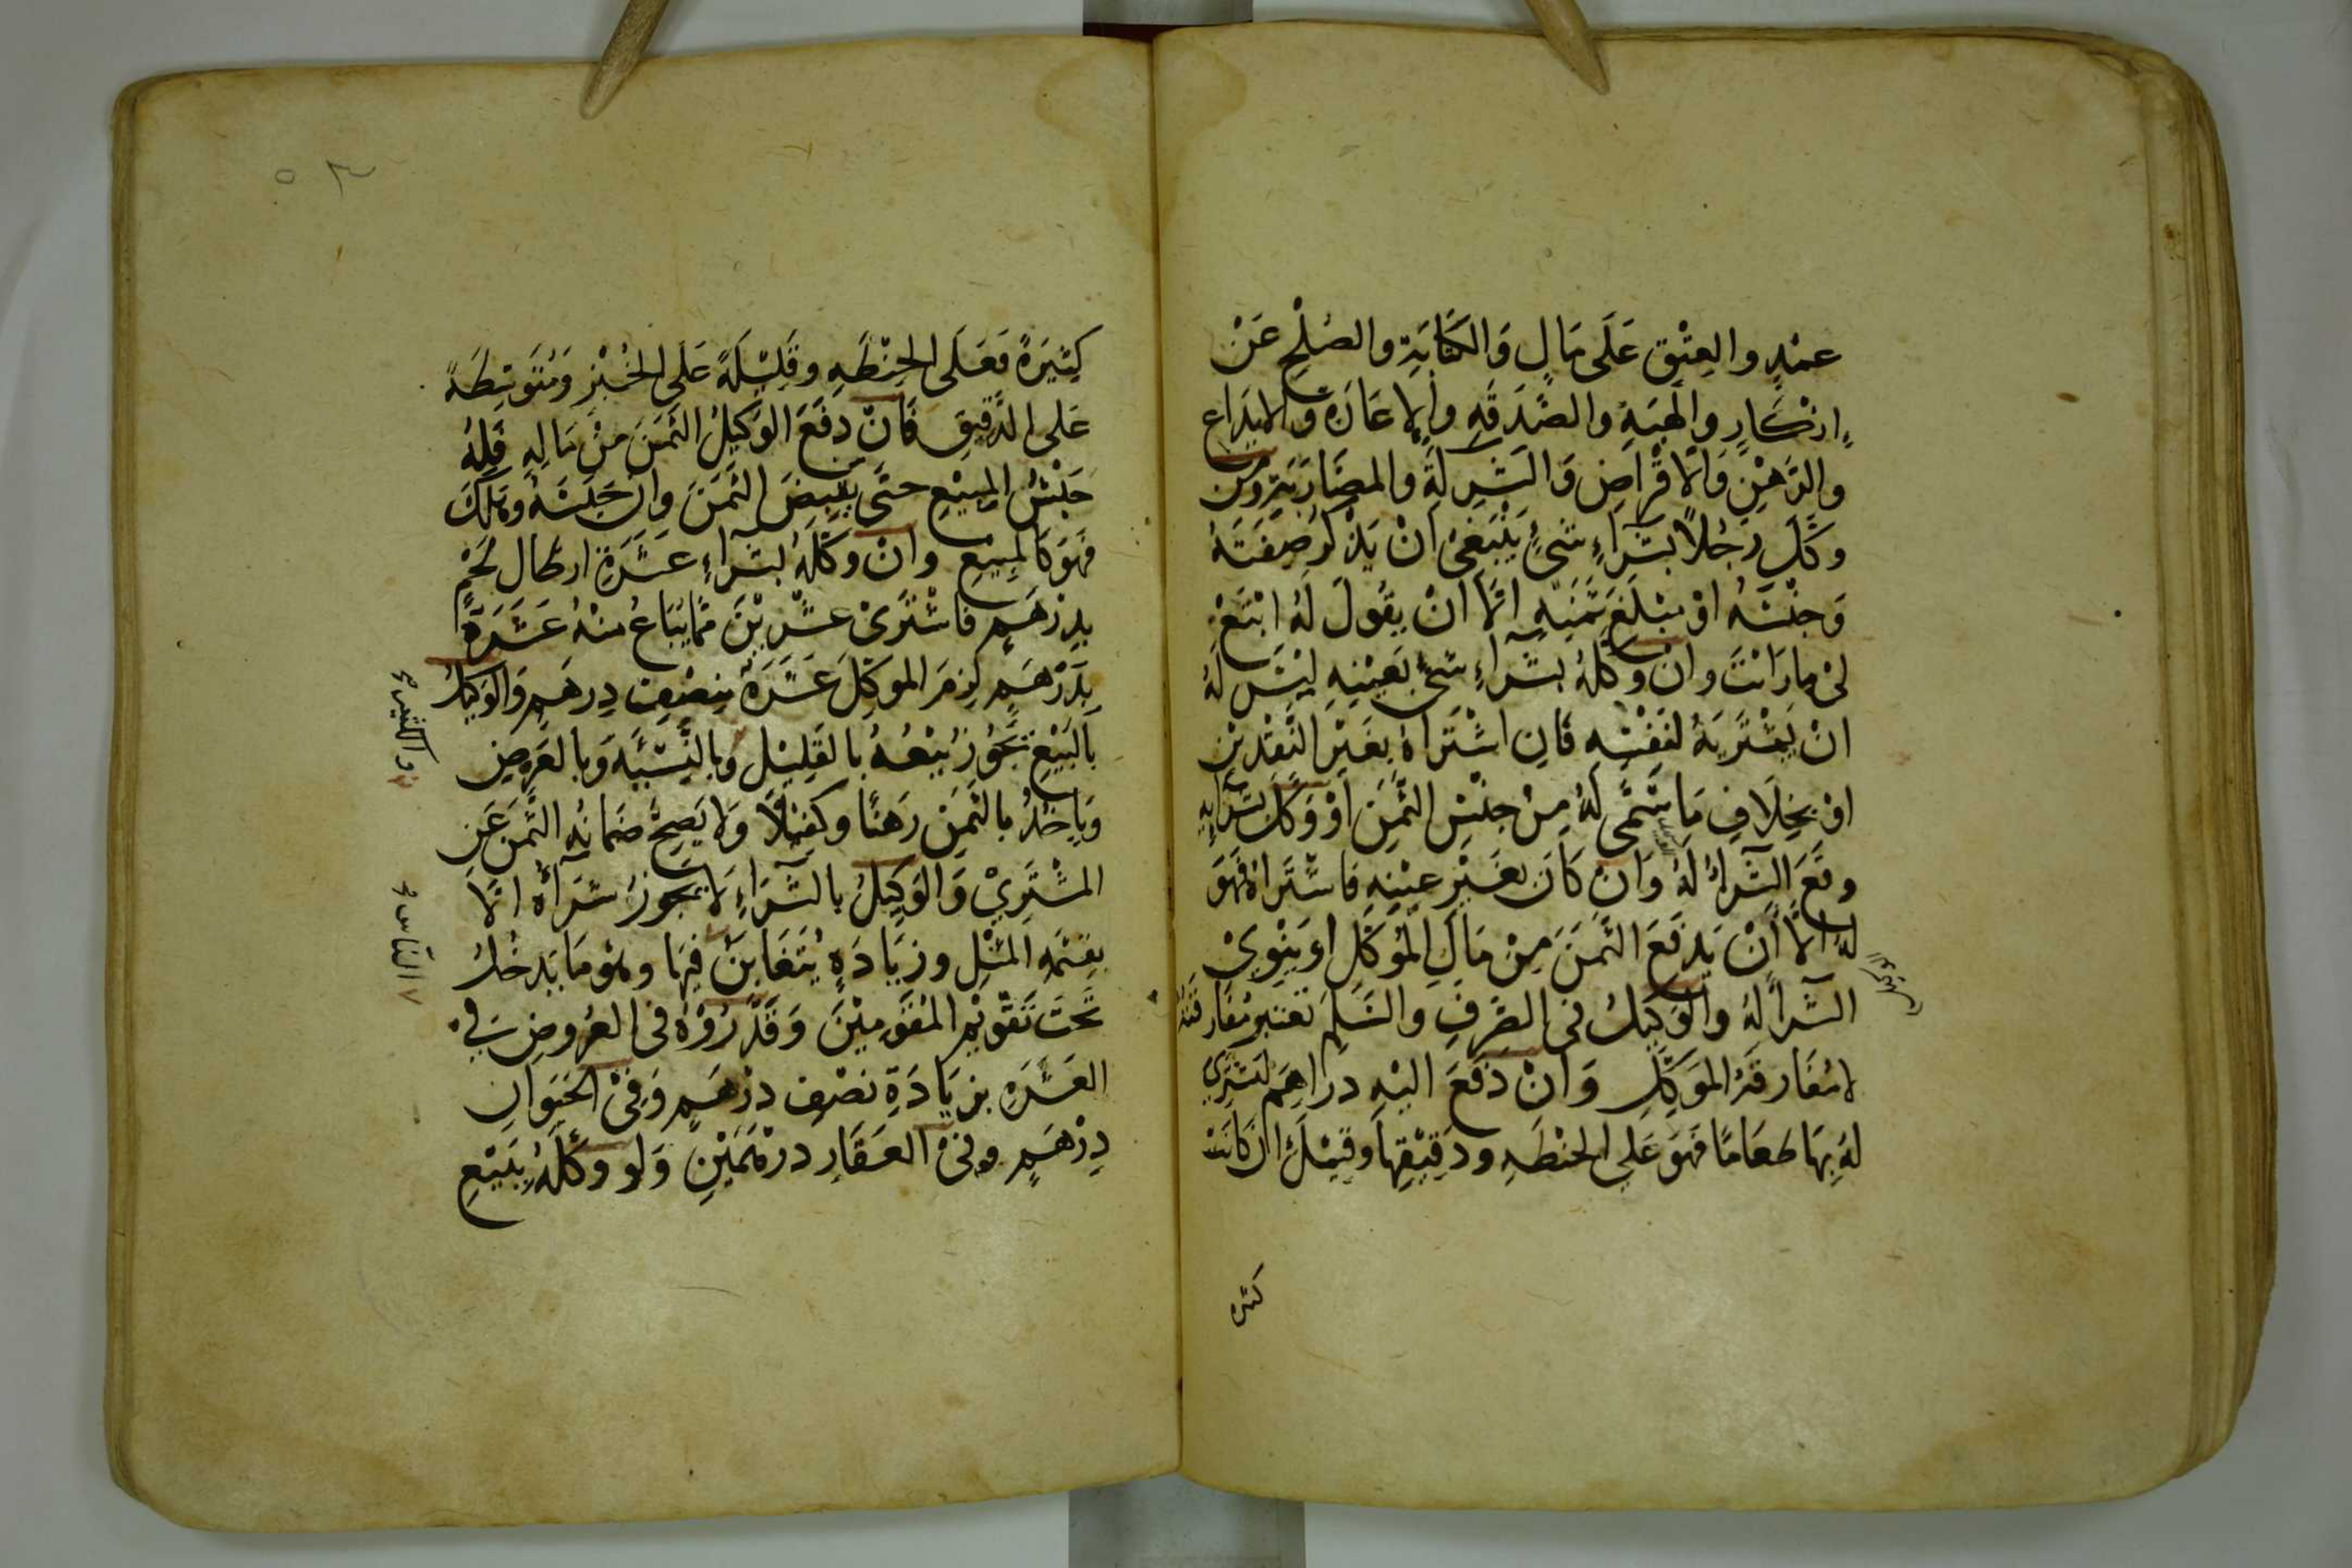 عَمْدٍ والعِتْقِ عَلَى مَالٍ وَالكِتَابَةِ والصُلْحِ عَنْ
اِنْكَارٍ والهِبَةِ والصَّدَقَهِ وَالاِعَارَةِ وَالاِيدَاعِ
والرَّهْنِ وَالاقْرَاضِ وَالشَرِكَةِ والمضَارَبَةِ ومَن
وكَّلَ رَجُلاً بشَرَاءِ شَىءٍ يَنْبَغِى اَنْ يَذْكُرَ صِفَتَهُ
وَجِنْسَهُ اوْ مَبْلَغَ ثَمَنِهِ اِلَّا اَنْ يَقُولَ لَهُ ابْتَعْ
لىْ مارَاَيْتَ وانْ وَكَّلَهُ بشَرَاءِ شَىْءٍ بعَيْنِهِ لَيْسَ لَهُ
انْ يَشْتَرِيَهُ لنَفْسِهِ فَانِ اشْتَرَاهُ بِغَيْرِ النَّقْدَيْنِ
اوْ بخِلَافِ مَا سَمَّى لَهُ مِنْ جِنْسِ الثَّمَنِ اَوْ وَكَّلَ بشَرَايِهِ
وقَعَ الشَرَاءُ لَهُ وَانْ كَانَ بغَيْرِ عيْنِهِ فاشْتَرَاهُ فَهَوَ
لهُ الَّا اَنْ يَدْفَعَ الثَمَنَ مِنْ مَالِ المُوَكِّلِ اويَنْوِىْ
الشَرَا لَهُ والوَكِيلُ فى الصَّرْفِ والسَّلَمِ تعْتبرُ مُفَارقَتُهُ
لا مُفَارقَةُ الموَكِّلِ وَانْ دَفَعَ اليْهِ دراهِمَ ليَشْتَرِي
لهُ بِهَا طعَامًا فَهوَ عَلى الحنْطَهِ ودَقِيْقِهَا وَقِيْلَ ان كَانَتْ
كثيره
كثِيْرَةً فَعَلَى الحِنْطَهِ وقَلِيْلَةً عَلَى الخُبْزِ وَمُتَوَسِطَةً
عَلى الدَّقِيقِ فَانْ دفَعَ الوَكِيلُ الثَّمَنَ منْ مَالِهِ فَلِهُ
حَبْسُ المبِيْعِ حتَّى يَقْبِضَ الثَّمَنَ وانْ حَبَسَهُ وهَلَكَ
فَهَوَ كَالمبِيْعِ وانْ وكَّلَهُ بشَرَاءِ عَشَرَةِ ارطَالِ لَحْمٍ
بدِرْهَمٍ فاشْتَرَىْ عشْرِيْنَ مِمَّا يُبَاعُ منْهُ عَشَرَةٌ
بِدِرْهَمٍ لَزِمَ الموَكِّلَ عَشَرَةٌ بنِصْفِ دِرهَمٍ وَالوَكِيْلُ
بِالبَيْعِ يَجُوزُ بَيْعُهُ بالقَلِيْلِ وَبالنَّسِيَّهِ وَبالعَرَضِ
وَيَاخُذُ بالثَّمَنِ رَهْنًا وكَفِيْلًا وَلا يَصِحُّ ضمَانُهُ الثَّمَنَ عَنِ
المشْتَرِيْ وَالوَكِيلُ بالشَرَاءِ لَا يَجُوزُ شرَآؤُهُ الَّا
بقِيْمَهِ المِثْلِ وزيَادَةٍ يُتَغَابَنُ فِيهَا وهْوَ مَا يَدخُلُ
تَحتَ تَقْوِيْمِ المُقَوِّمِيْنَ وَقَدَّرُوْهُ فى العُرُوضِ فى
العَشَرَهِ بزيَادَةِ نصْفِ درْهَمٍ وَفىْ الحَيَوَانِ
دِرْهَمٍ وفىْ العَقَارِ درْهَمَيْنِ وَلو وكَّلَهُ بِبَيْعِ